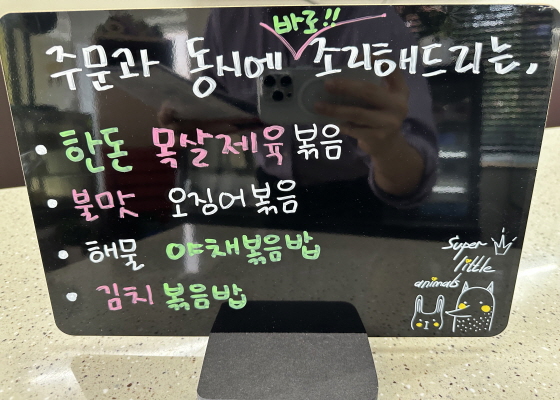 바로!!
주문과 동시에 조리해드리는,
• 한돈 목살제육볶음
• 불맛 오징어볶음
• 해물 야채볶음밥
• 김치볶음밥
Super
little
animals